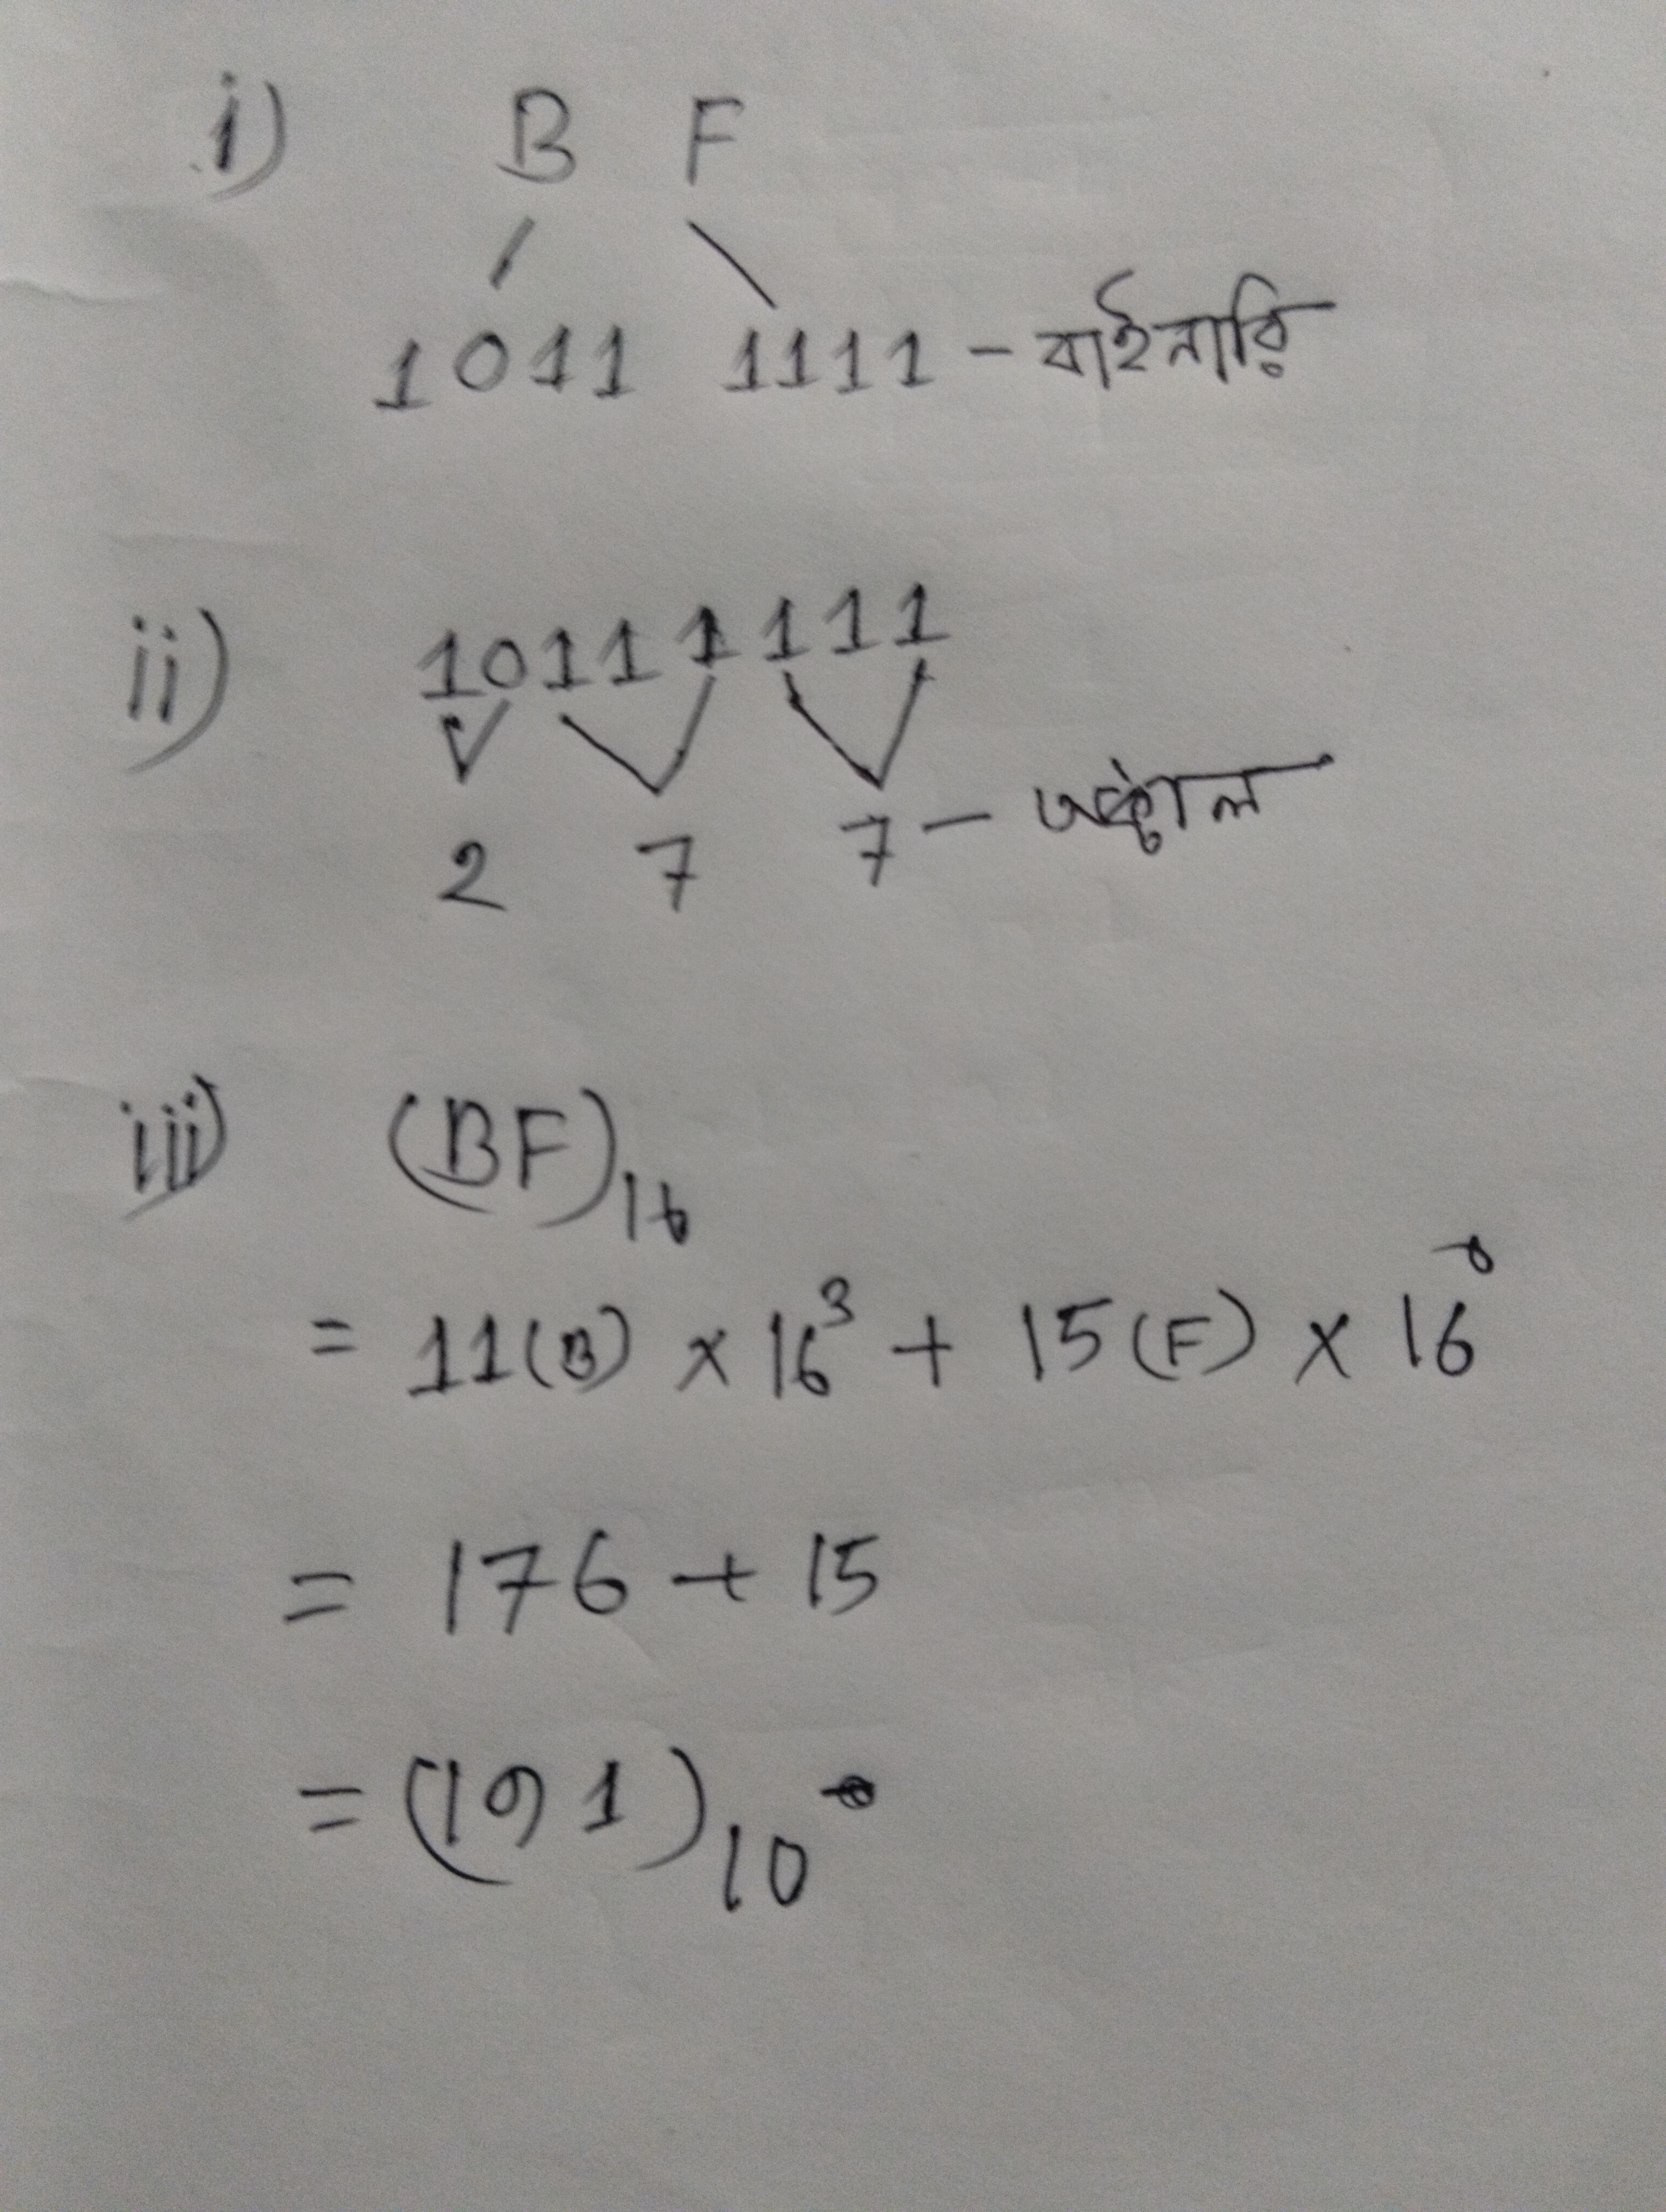 i) B F
1011 1111 - বাইনারি
ii) 10111111
2 7 7 - অক্টাল
iii) (BF)₁₆
= 11(B) × 16³ + 15(F) × 16⁰
= 176 + 15
= (191)₁₀